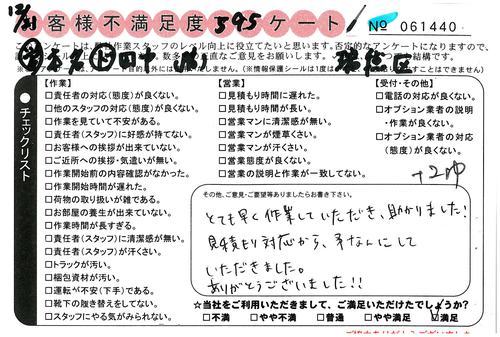 12/31
お客様不満足度395ケート
No 061440
(※情報保護シールは1度は
瑞穂区
チェックリスト
【作業】
□責任者の対応(態度)が良くない。
□他のスタッフの対応(態度)が良くない。
□作業を見ていて不安がある。
□責任者(スタッフ)に好感が持てない。
□お客様への挨拶が出来ていない。
□ご近所への挨拶・気遣いが無い。
□作業開始前の内容確認がなかった。
□作業開始時間が遅れた。
□荷物の取り扱いが雑である。
□お部屋の養生が出来ていない。
□作業時間が長すぎる。
□責任者(スタッフ)に清潔感が無い。
□責任者(スタッフ)が汗くさい。
□トラックが汚い。
□梱包資材が汚い。
□運転が不安(下手)である。
□靴下の履き替えをしてない。
□スタッフにやる気がみられない。
【営業】
□見積もり時間に遅れた。
□見積もり時間が長い。
□営業マンに清潔感が無い。
□営業マンが煙草くさい。
□営業マンが汗くさい。
□営業態度が良くない。
□営業の説明と作業が一致してない。
【受付・その他】
□電話の対応が良くない。
□オプション業者の説明
・作業が良くない。
□オプション業者の対応
(態度)が良くない。
その他、ご意見・ご要望等ありましたらお書き下さい。
とても早く作業していただき、助かりました!
見積もり対応から、ていねいにして
いただきました。
ありがとうございました!!
☆当社をご利用いただきまして、ご満足いただけたでしょうか?
□不満 □やや不満 □普通 □やや満足 ☑満足